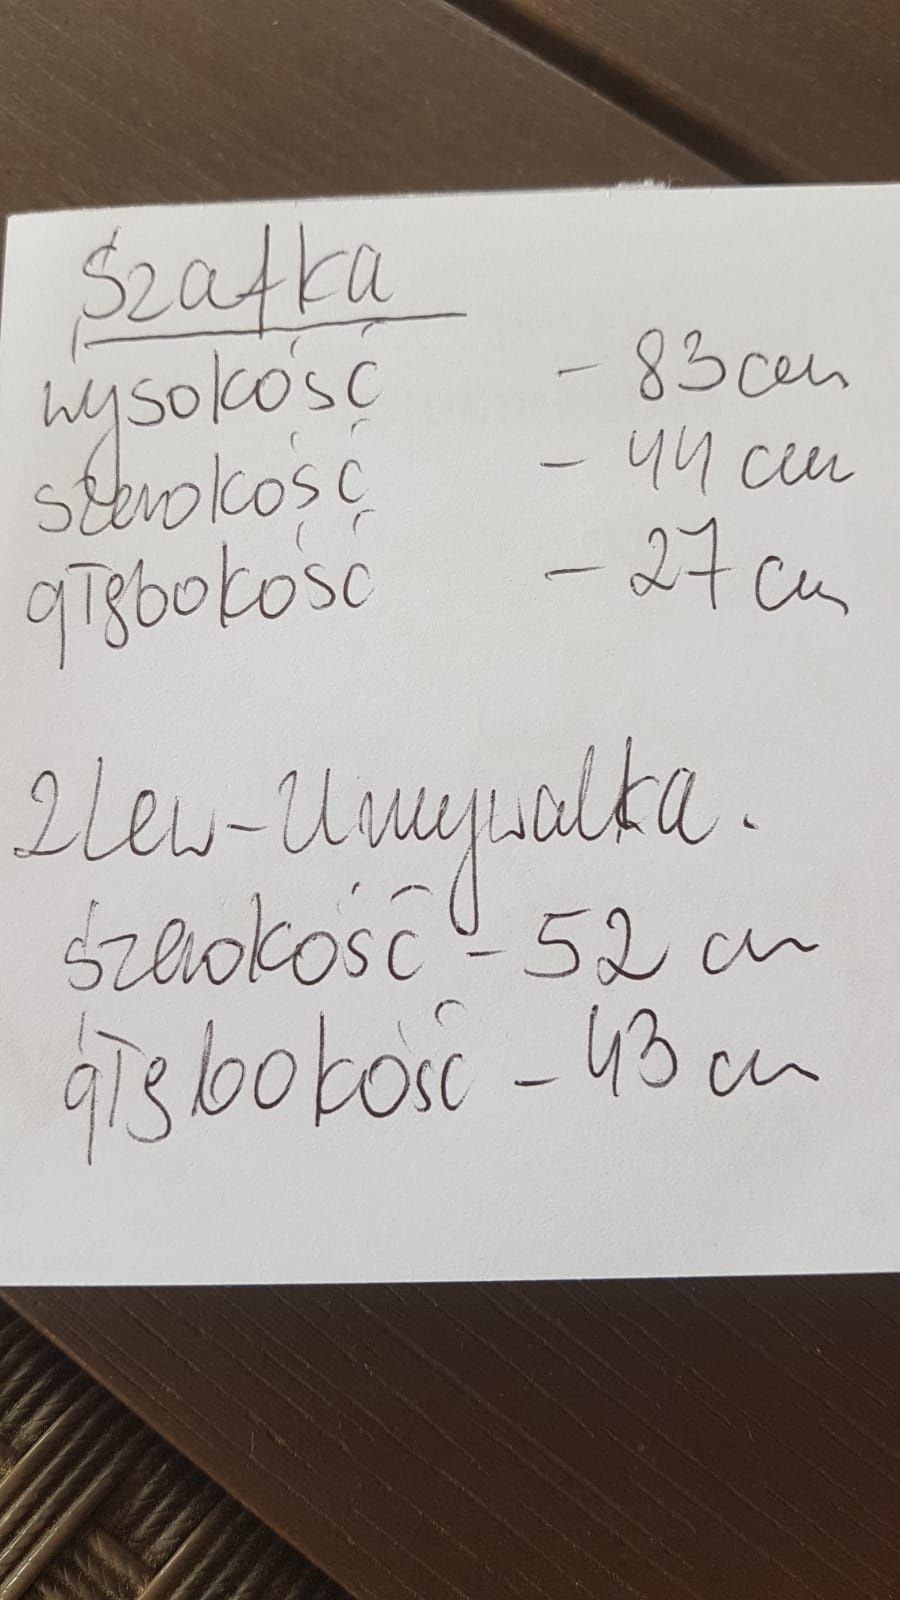 Szafka
wysokość - 83 cm
szerokość - 44 cm
głębokość - 27 cm
Zlew - Umywalka.
szerokość - 52 cm
głębokość - 43 cm